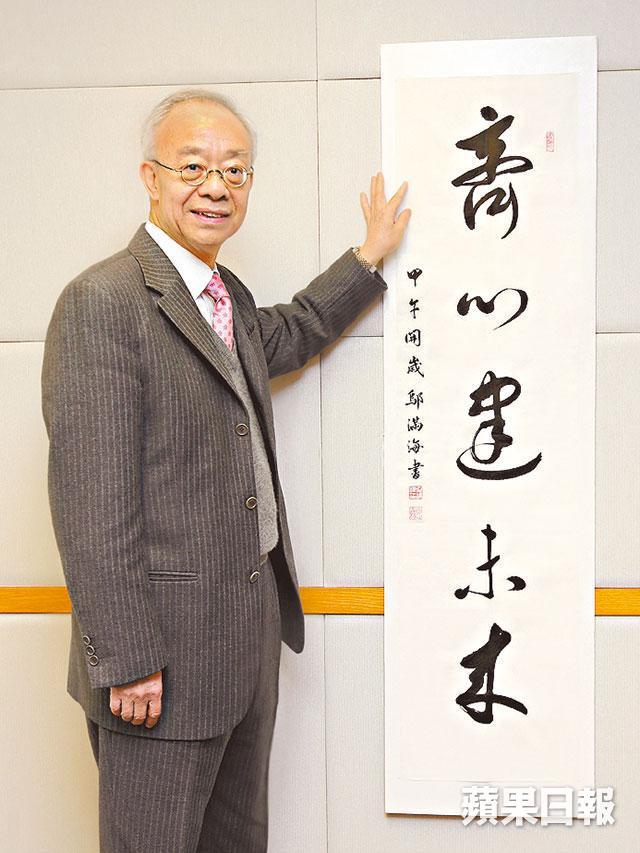 齊心建未來
甲午開歲 鄔滿海書
蘋果日報